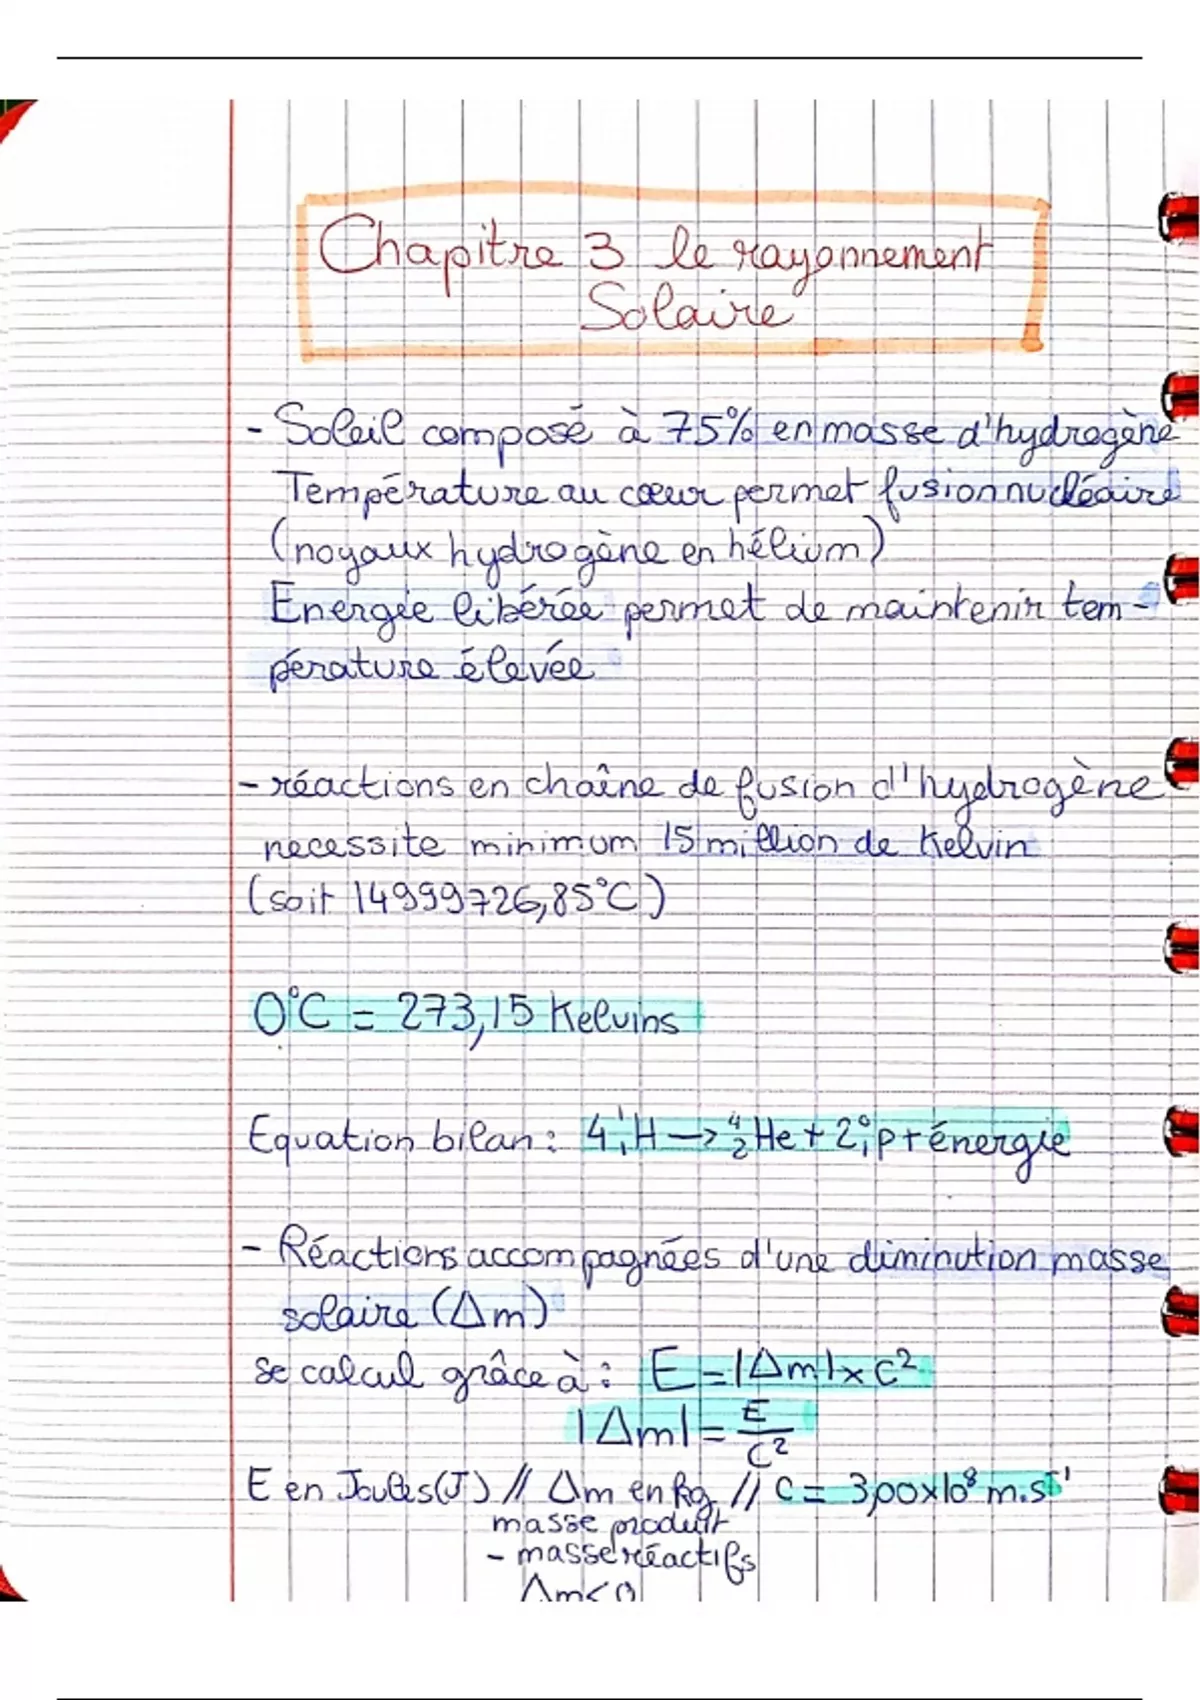 Chapitre 3 le rayonnement
Solaire
- Soleil composé à 75% en masse d'hydrogène
Température au cœur permet fusion nucléaire
(noyaux hydrogène en hélium)
Energie libérée permet de maintenir tem-
pérature élevée
- réactions en chaîne de fusion d'hydrogène
necessite minimum 15 million de Kelvin
(soit 14999726,85°C)
0°C = 273,15 Kelvins
Equation bilan : 4 ¹₁H → ⁴₂He + 2 ⁰₁p + énergie
- Réactions accompagnées d'une diminution masse
solaire (Δm)
se calcul grâce à : E = |Δm| x c²
|Δm| = E/c²
E en Joules (J) // Δm en kg // c = 3,00x10⁸ m.s⁻¹
masse produit
- masse réactifs
Δm<0